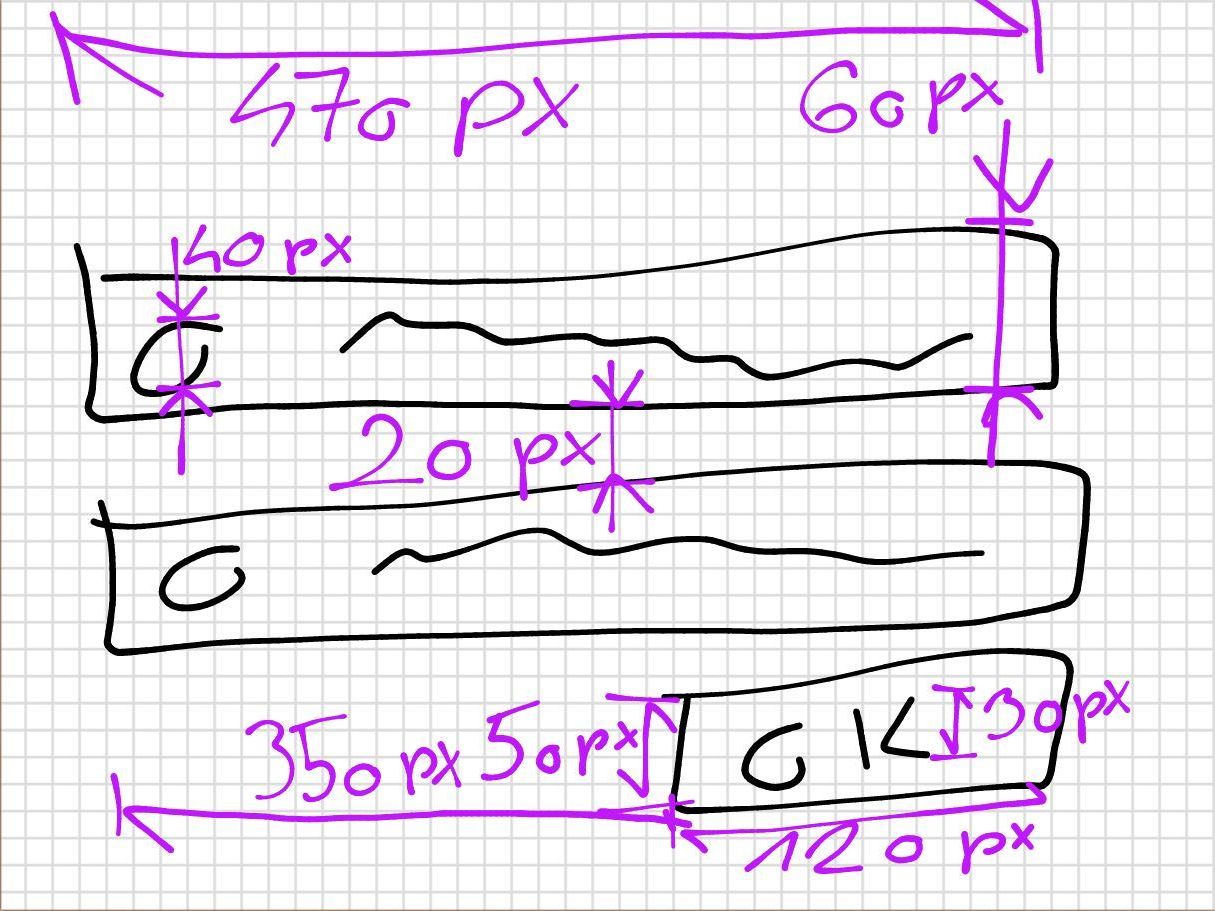 470 px 60px
40 px
20 px
350 px 50px OK 30px
120 px